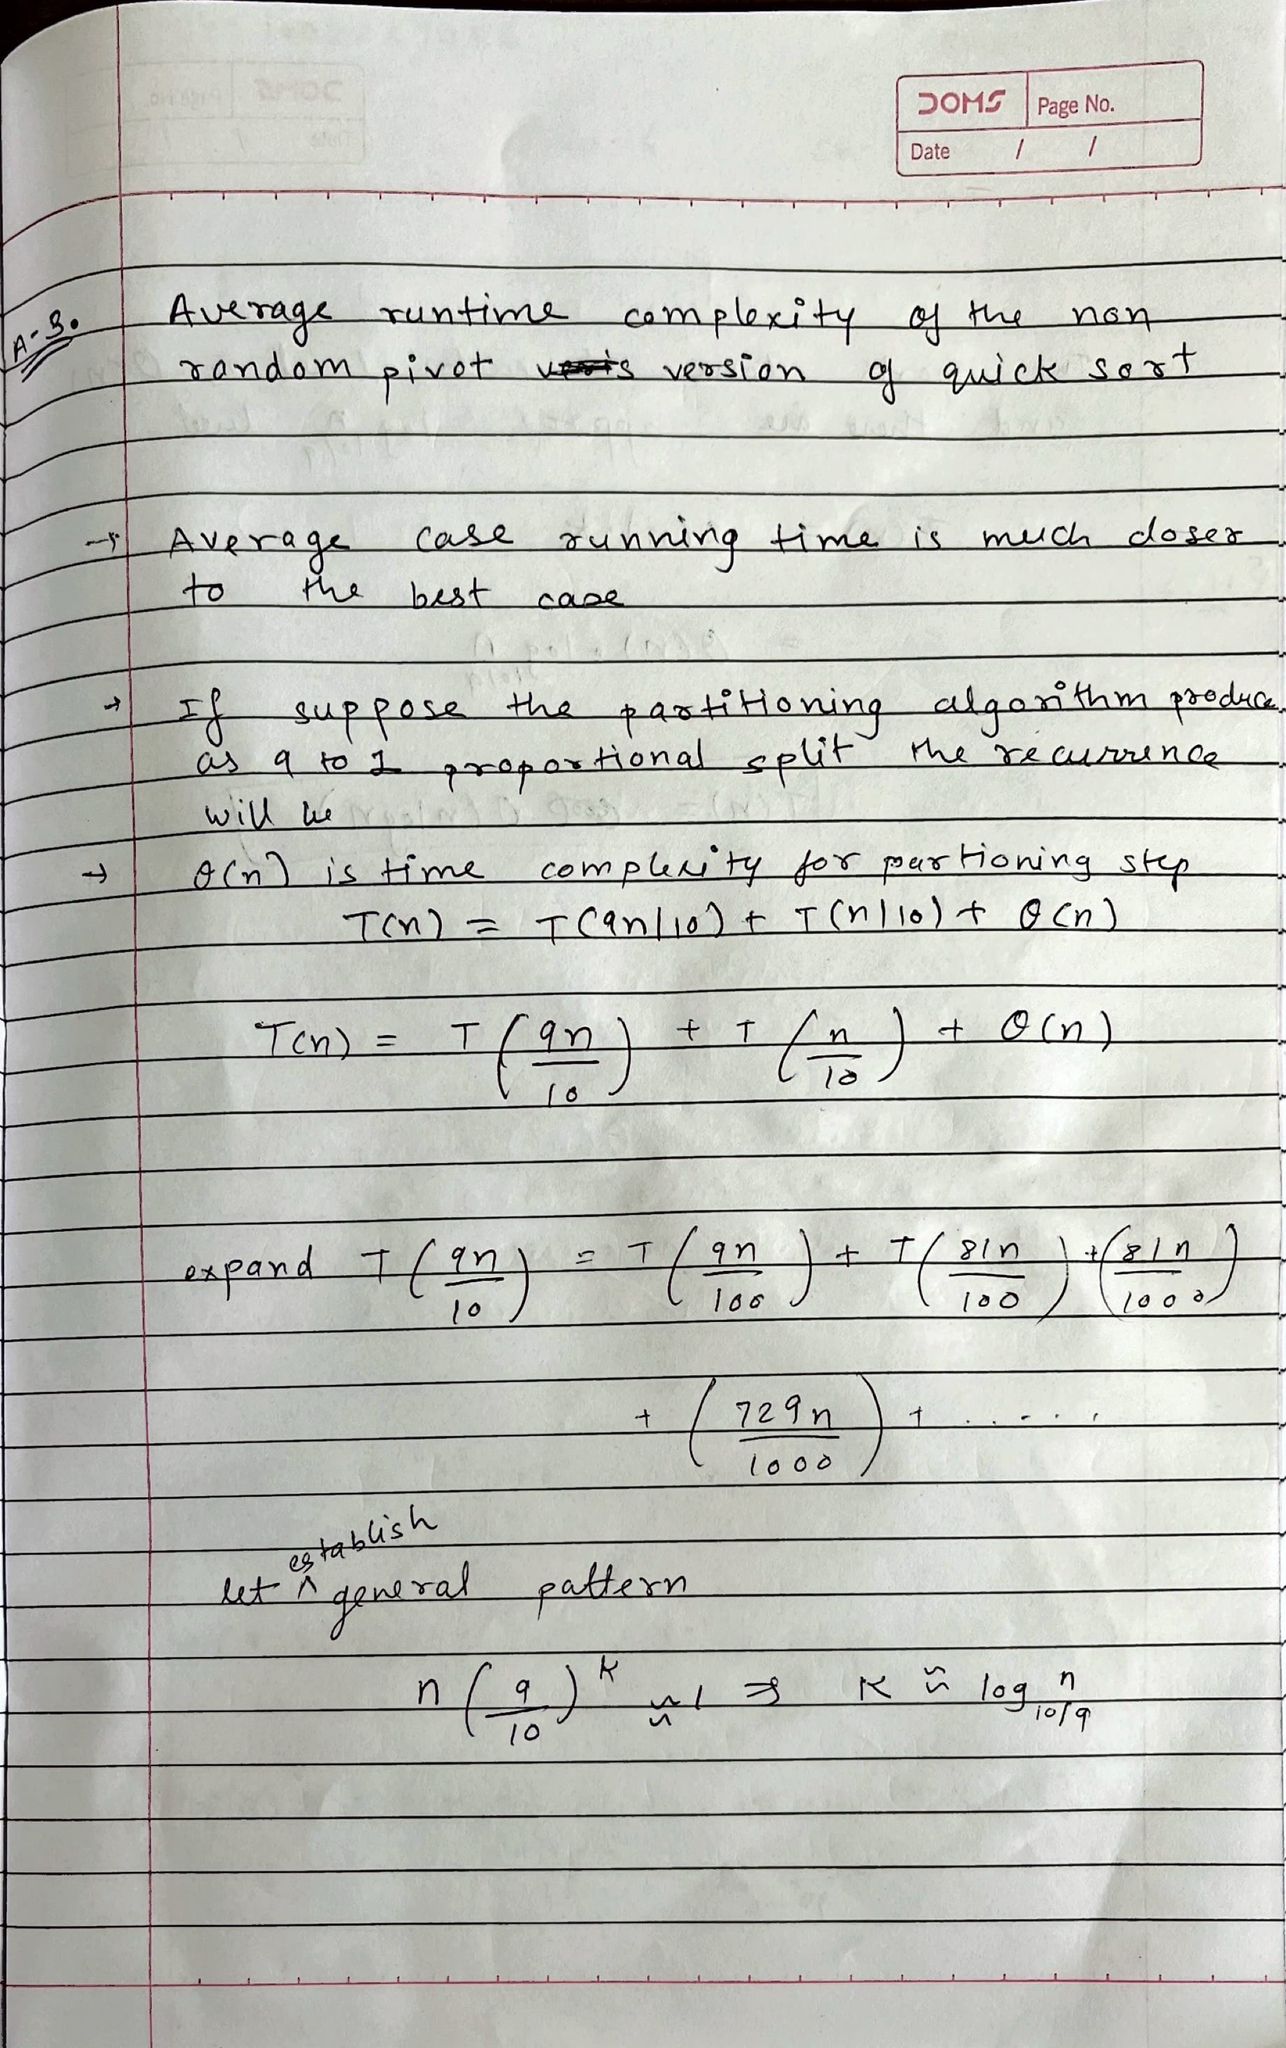 DOMS Page No.
Date / /
A-3. Average runtime complexity of the non
random pivot version of quick sort
→ Average case running time is much closer
to the best case
→ If suppose the partitioning algorithm produce
as 9 to 1 proportional split the recurrence
will be
→ θ(n) is time complexity for partioning step
T(n) = T(9n/10) + T(n/10) + θ(n)
T(n) = T(9n/10) + T(n/10) + θ(n)
expand T(9n/10) = T(9n/100) + T(81n/100) + (81n/1000)
+ (729n/1000) + .....
let establish general pattern
n(9/10)^k ≈ 1 ⇒ K ≈ log_{10/9} n